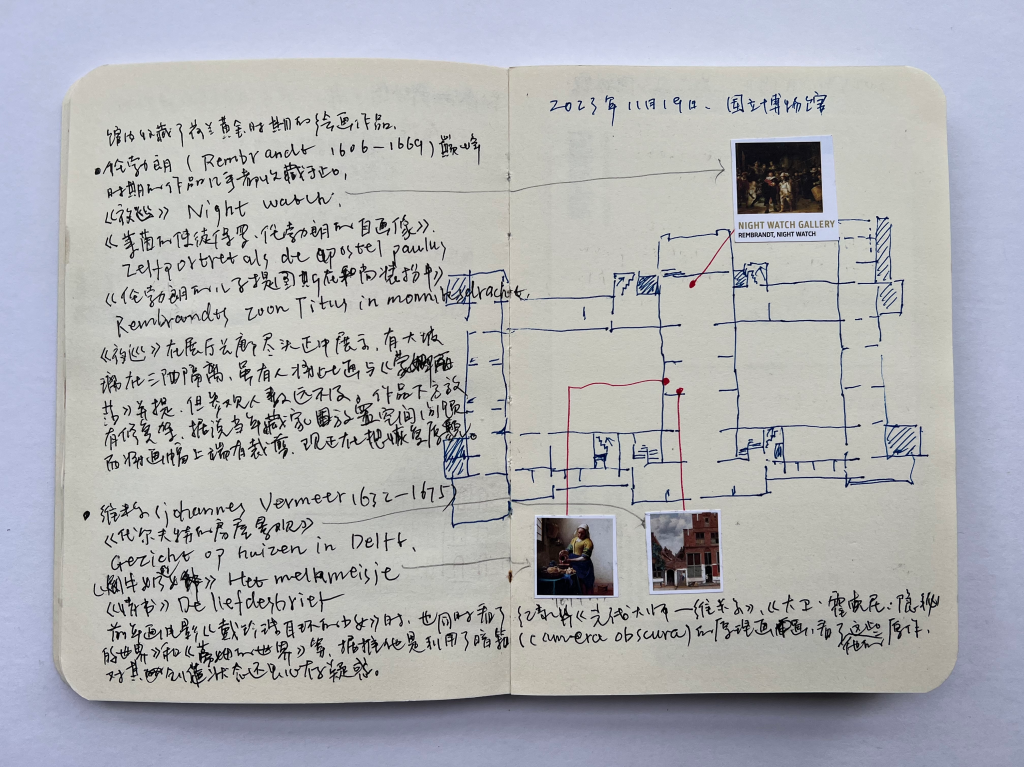 馆内收藏了荷兰黄金时期的绘画作品.
•伦勃朗 (Rembrandt 1606-1669) 巅峰
时期的作品几乎都收藏于此。
《夜巡》 Night watch.
《 使徒保罗·伦勃朗的自画像》.
Zelfportret als de apostel paulus
《伦勃朗的儿子提图斯在 》
Rembrandts zoon Titus in monniksdracht.
《夜巡》在展厅长廊尽头正中展示, 有大玻
璃在三面隔离, 虽有人将此画与《蒙娜丽
莎》并提, 但参观人数远不及。作品下方放
有 , 据说当年藏家因放置空间的问题
而将画幅上端有裁剪. 现正在把 恢复原 。
• (johannes Vermeer 1632-1675)
《代尔夫特的房屋景观》
Gezicht op huizen in Delft.
《 》 Het melkmeisje
《情书》 De liefdesbrief
前年画电影《戴珍珠耳环的少女》时, 也同时看了
的世界》和《 的世界》等, 据推 他是利用了暗箱
对其 状态还是心存疑惑。
2023年11月19日. 国立博物馆
NIGHT WATCH GALLERY
REMBRANDT, NIGHT WATCH
纪录片《 大师一维米尔》,《大卫·霍克尼: 隐秘
(camera obscura) 的原理画画, 看了这些 原作,